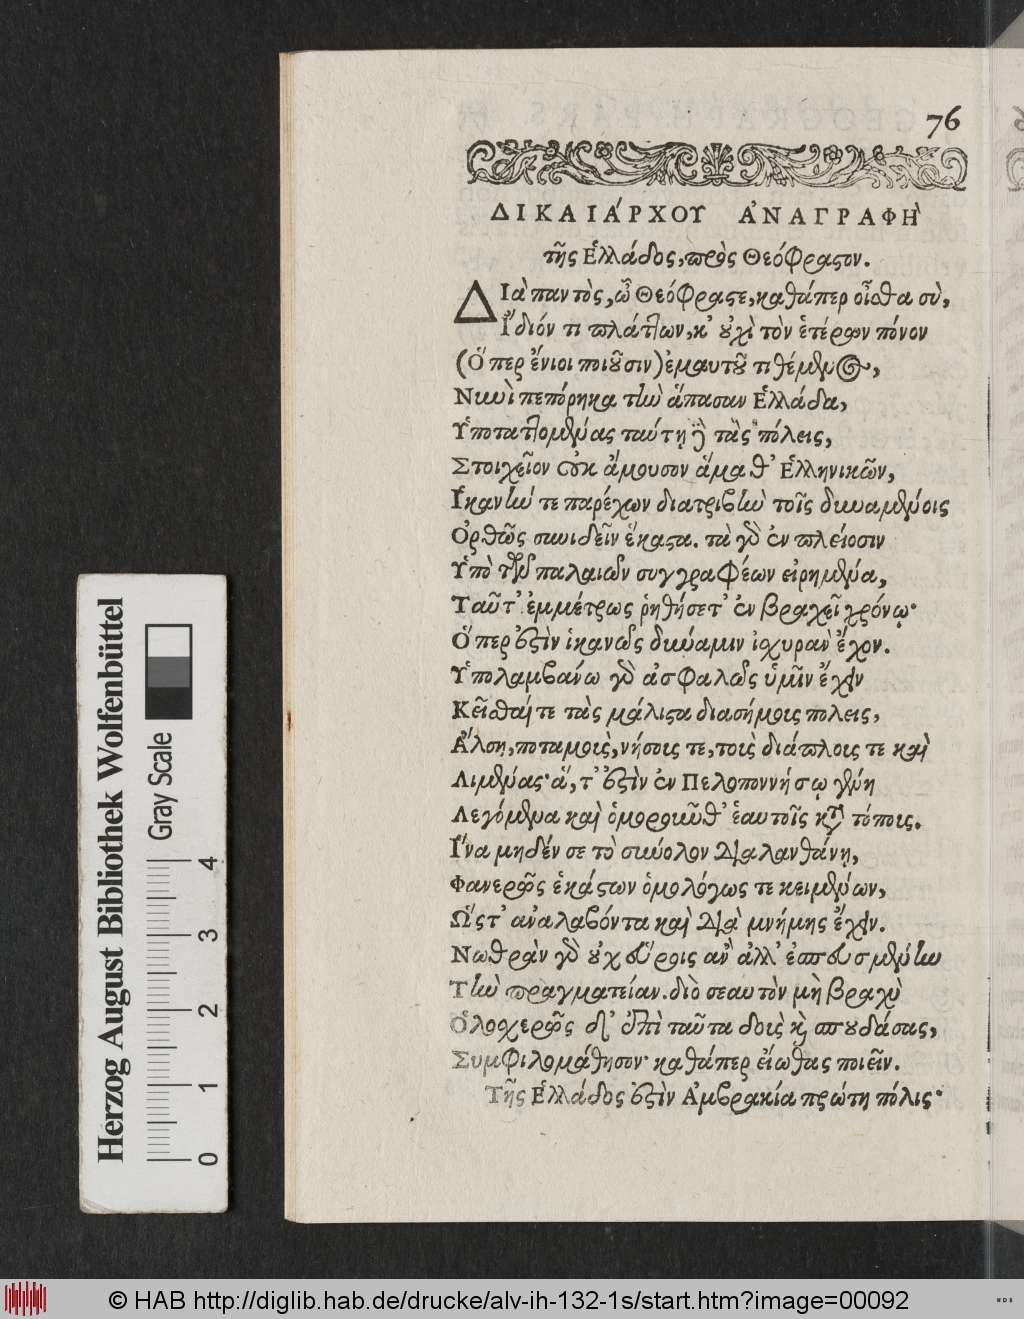 76
ΔΙΚΑΙΑ´ΡΧΟΥ Ἀ´ΝΑΓΡΑΦΗ`
τῆς Ἑλλάδος, πρὸς Θεόφραστον.
ΔΙὰ παντὸς, ὦ Θεόφραστε, καθάπερ οἶσθα σὺ,
Ἴδιόν τι πλάττων, κ' οὐχὶ τὸν ἑτέρων πόνον
(Ὅπερ ἔνιοι ποιοῦσιν) ἐμαυτοῦ τιθέμενος,
Νυνὶ πεπόρηκα τὴν ἅπασαν Ἑλλάδα,
Ὑποταττομένας ταύτῃ τὰς πόλεις,
Στοιχεῖον οὐκ ἄμουσον ἅμα θ' Ἑλληνικῶν,
Ἱκανήν τε παρέχων διατριβὴν τοῖς δυναμένοις
Ὀρθῶς συνιδεῖν ἕκαστα. τὰ γὰρ ἐν πλείοσιν
Ὑπὸ τῶν παλαιῶν συγγραφέων εἰρημένα,
Ταῦτ' ἐμμέτρως ῥηθήσετ' ἐν βραχεῖ χρόνῳ·
Ὅπερ ἐστὶν ἱκανῶς δύναμιν ἰσχυρὰν ἔχον.
Ὑπολαμβάνω γὰρ ἀσφαλῶς ὑμῖν ἔχειν
Κεῖσθαί τε τὰς μάλιστα διασήμοις πόλεις,
Ἄλση, ποταμοὶς, νήσοις τε, τοὶς διάπλοις τε καὶ
Λιμένας· ἅ, τ' ἐστὶν ἐν Πελοποννήσῳ γένη
Λεγόμενα καὶ ὁμοροιῶθ' ἑαυτοῖς τόποις.
Ἵνα μηδέν σε τὸ σύνολον διαλανθάνῃ,
Φανερῶς ἑκάστων ὁμολόγως τε κειμένων,
Ὥστ' ἀναλαβόντα καὶ διὰ μνήμης ἔχειν.
Νωθρὰν γὰρ οὐχ εὕροις ἂν ἀλλ' ἐσπευσμένην
Τὴν πραγματείαν. διὸ σεαυτὸν μὴ βραχὺ
Ὁλοχερῶς δ' ἐπὶ ταῦτα δοὶς καὶ σπουδάσας,
Συμφιλομάθησον· καθάπερ εἴωθας ποιεῖν.
Τῆς Ἑλλάδος ἐστὶν Ἀμβρακία πρώτη πόλις·
Herzog August Bibliothek Wolfenbüttel
Gray Scale
0 1 2 3 4
© HAB http://diglib.hab.de/drucke/alv-ih-132-1s/start.htm?image=00092